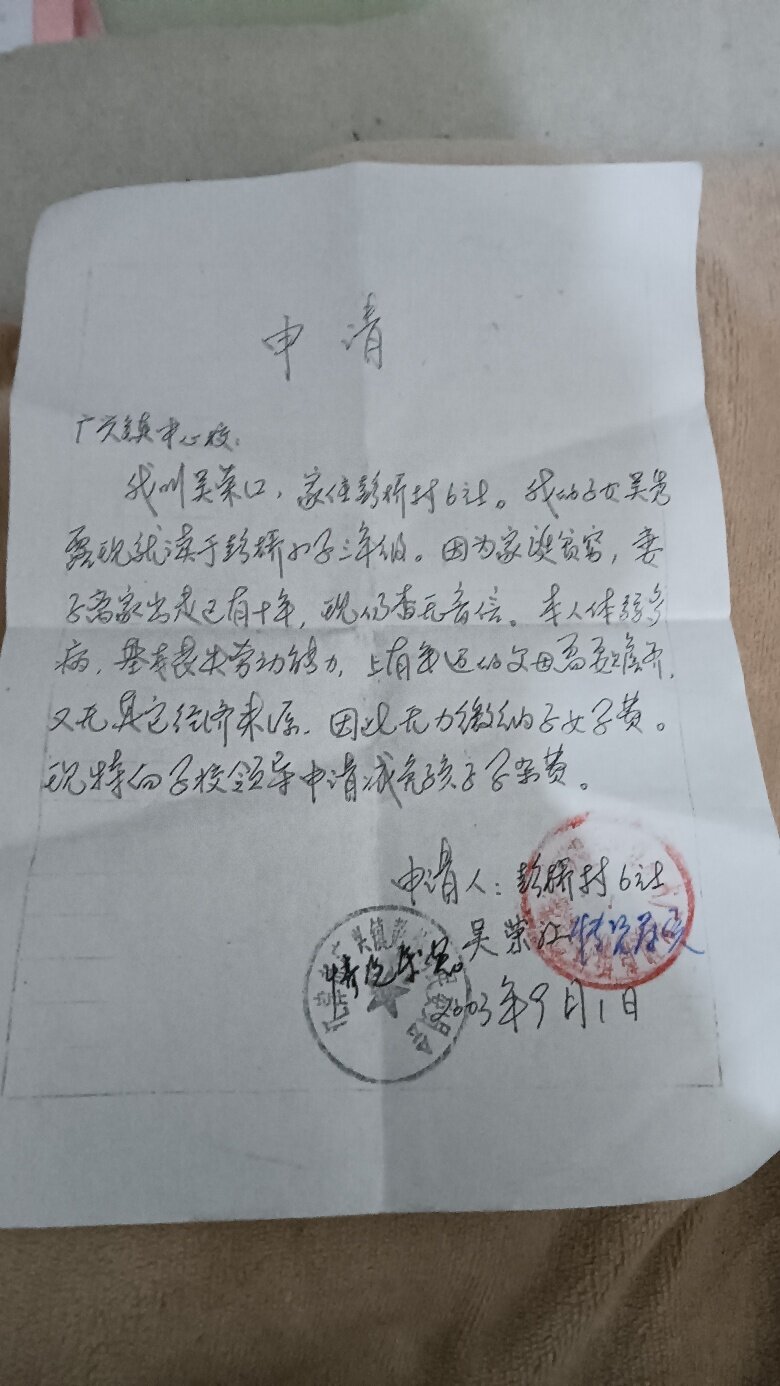 申请
广兴镇中心校:
我叫吴荣江，家住彭桥村6社。我的子女吴
露现就读于彭桥小学三年级。因为家境贫穷，妻
子离家出走已有十年，现仍杳无音信。本人体弱多
病，基本丧失劳动能力，上有年迈的父母需要赡养，
又无其它经济来源，因此无力缴纳子女学费。
现特向学校领导申请减免孩子学杂费。
申请人：彭桥村6社
吴荣江 情况属实
情况属实。
2003年9月1日
广兴镇